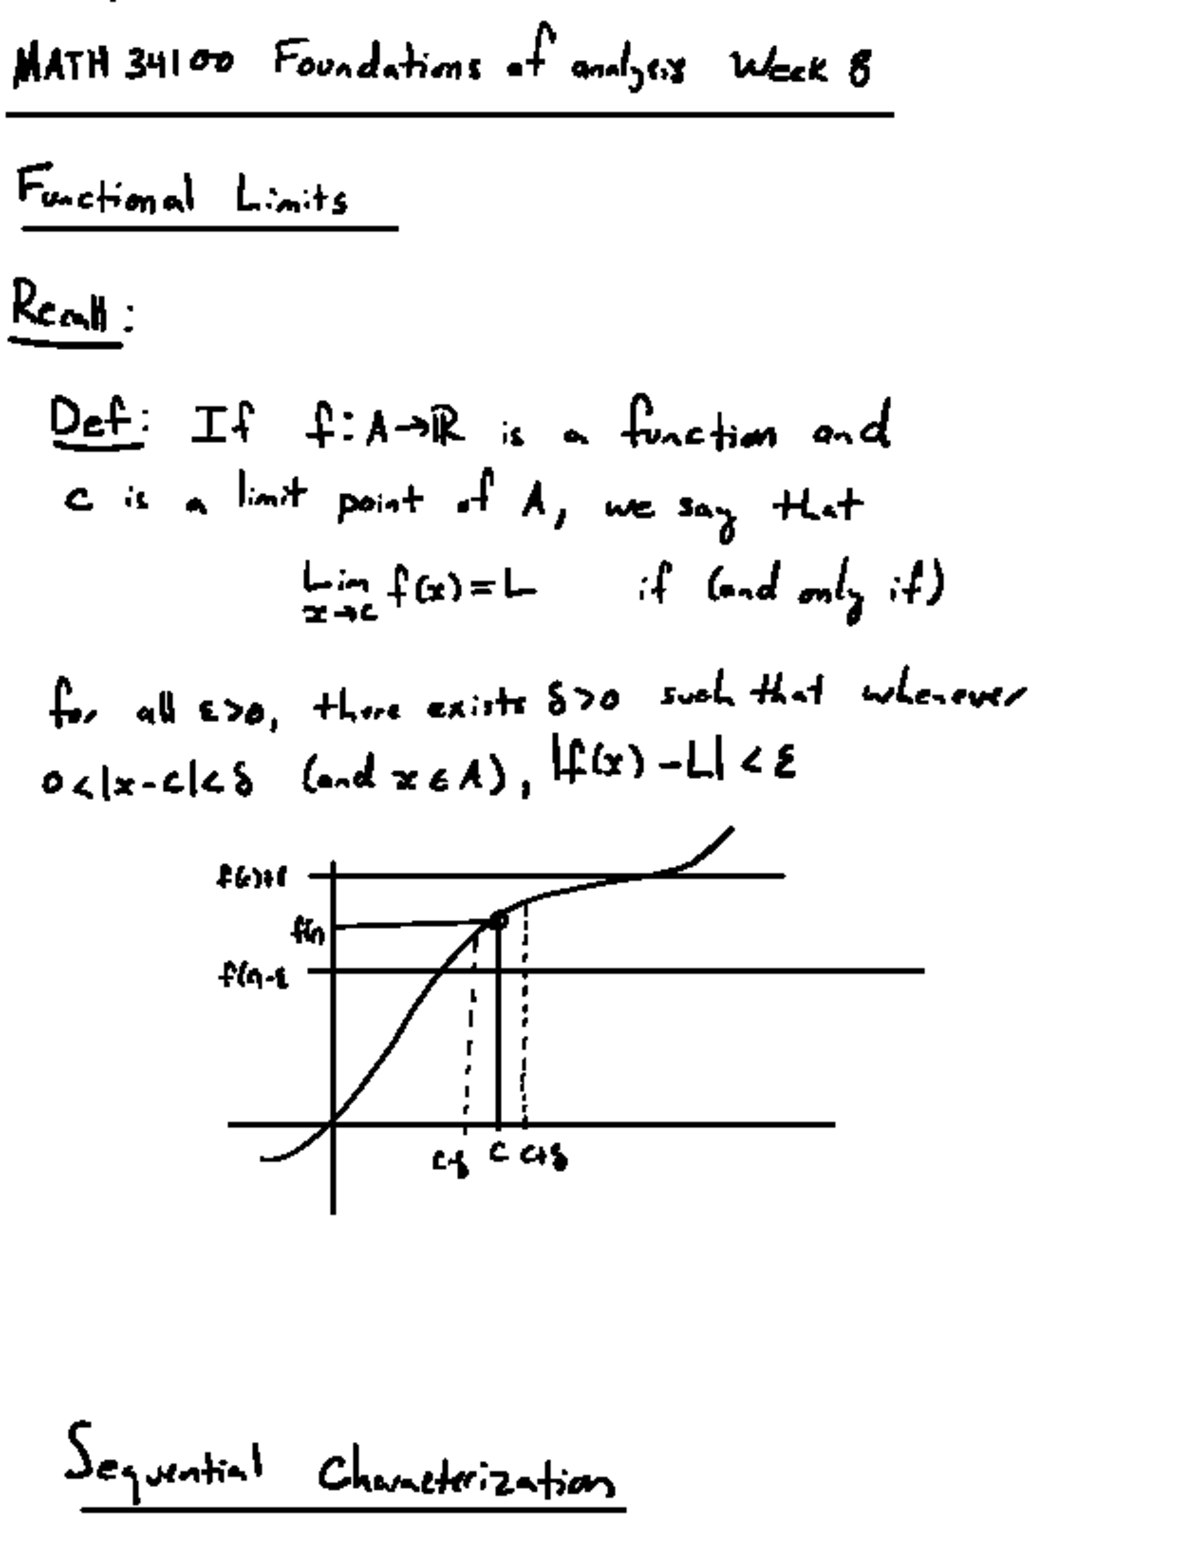 MATH 34100 Foundations of analysis Week 8
Functional Limits
Recall:
Def: If f: A→ℝ is a function and
c is a limit point of A, we say that
Lim f(x) = L if (and only if)
x→c
for all ε>0, there exists δ>0 such that whenever
0<|x-c|<δ (and x ∈ A), |f(x) - L| < ε
f(c)+ε
f(c)
f(c)-ε
c-δ c c+δ
Sequential Characterization